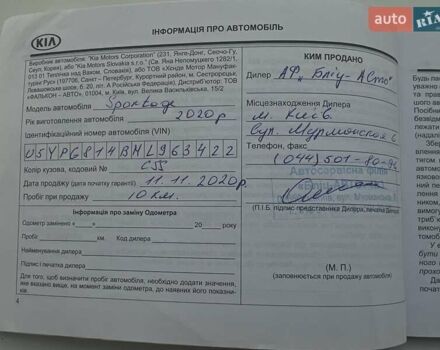 AUTO
RIA
KIA
ІНФОРМАЦІЯ ПРО АВТОМОБІЛЬ
Виробник автомобіля: або "Kia Motors Corporation" (231, Янге-Донг, Сеочо-Гу,
Сеул, Корея), або "Kia Motors Slovakia s.r.o." (Св. Яна Непомуцкего 1282/1,
013 01 Теплічка над Вахом, Словаків), або ТОВ «Хенде Мотор Мануфак-
туринг Рус» (197706, Санкт – Петербург, Курортний район, м. Сестрорецьк,
Левашовське шоссе, б. 20, літ. А Російська Федерація). Дистриб'ютор: ТОВ
«ФАЛЬКОН – АВТО», 01004, м. Київ, вул. Велика Васильківська, 15/2
Модель автомобіля Sportage
Рік виготовлення автомобіля 2020р
Ідентифікаційний номер автомобіля (VIN)
U5YPG814BML963422
Колір кузова, кодовий № CSS
Дата продажу (дата початку гарантії) 11.11.2020р.
Пробіг при продажу 10 км.
Інформація про заміну Одометра
Одометр замінено « » 20 року
Пробіг км. Код дилера
Найменування дилера
Підпис і печатка дилера
Для того, щоб визначити пробіг автомобіля, необхідно додати значення,
яке вказано вище, на момент заміни одометра, до наявних його показни-
ків.
4
КИМ ПРОДАНО
Дилер АФ "Бліц-Авто"
Місцезнаходження Дилера
м. Київ.
вул. Мурманская 6
Телефон, факс
(044) 501-
Автосервісна філія
(П.І.Б. підпис представника Дилера, печатка Дилера)
(М. П.)
(заповнюється при продажу автомобіля)